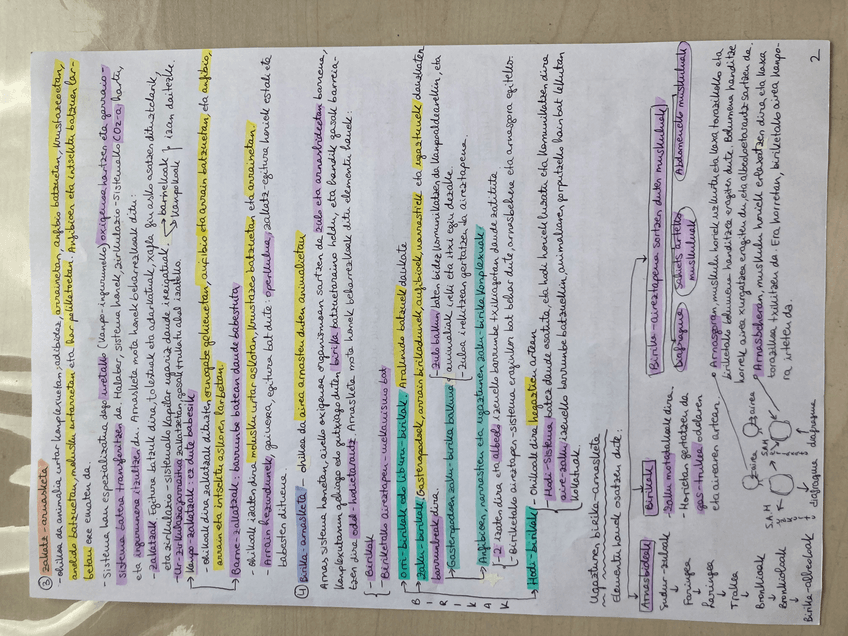 ③ Zakatz-arnasketa
- ohikoa da animalia urtar konplexuetan, adibidez, arrainetan, anfibio batzuetan, krustazeoetan,
anelido batzuetan, molusku urtarretan eta har poliketoetan. Anfibioen eta intsektu batzuen lar-
betan ere ematen da.
- Sistema hau espezializatua dago uretako (kanpo-inguruneko) oxigenoa hartzen eta garraio-
sistema batera transferitzen da. Halaber, sistema honek, zirkulazio-sistemako CO2-a hartu,
eta ingurunera itzultzen du. Arnasketa mota honek beharrezkoak ditu:
- Zakatzak Egitura batzuk dira, tolestuak eta adarkatuak, xafla
eta zirkulazio-sistemako kapilar ugariz daude irrigatuak. → barnekoak
→ kanpokoak } izan daitezke.
- Ur-zirkulazio zakatzen gasak trukatu ahal izateko.
→ Kanpo-zakatzak: ez dute babesik
- ohikoak dira zakatzak dituzten ornogabe gehienetan, anfibio eta arrain batzuetan, eta anfibio,
arrain eta intsektu askoren larbetan.
→ Barne-zakatzak: barrunbe batean daude babestuta,
- ohikoak izaten dira molusku urtar askotan, krustazeo batzuetan eta arrainetan.
- Arrain hezurdunek, gainera, egitura bat dute: operkulua; zakatz-egitura horiek estali eta
babesten dituena.
④ Birika-arnasketa: ohikoa da airea arnasten duten animalietan
Arnas sistema honetan, aireko oxigenoa organismoan sartzen da zulo eta arnasbideetan barrena,
Konplexutasun gehiago edo gutxiago duten, birika batzuetaraino heldu, eta handik gasak barreia-
tzen dira odol-hodietarantz. Arnasketa mota honek beharrezkoak ditu elementu hauek:
- Birikak
- Biriketako aireztapen-mekanismo bat
B I R I K A K
→ Orri-birikak edo liburu-birikak. Araknido batzuek dauzkate
→ Zaku-birikak: Gasteropodoek, arrain birikadunek, anfibioek, narrastiek eta ugaztunek dauzkaten
barrunbeak dira.
→ Gasteropodoen zaku-birika bakuna
- Zulo bakun baten bidez komunikatzen da kanpoaldearekin, eta
animaliak ireki eta itxi egin dezake.
- Zuloa irekitzean gertatzen da aireztapena.
→ Anfibioen, narrastien eta ugaztunen zaku-birika konplexuak
- 2 izaten dira eta albeolo izeneko barrunbe txikiagotan daude zatituta.
- Biriketako aireztapen-sistema eraginkor bat behar dute, arnasbehera eta arnasgora egiteko.
→ Hodi-birikak
- Ohikoak dira hegaztien artean
- Hodi-sistema batez daude osatuta, eta hodi horiek luzatu eta komunikatzen dira
aire-zaku izeneko barrunbe batzuekin, animaliaren gorputzeko hainbat lekutan
kokatuak.
Ugaztunen birika-arnasketa
Elementu hauek osatzen dute:
Arnasbideak
Sudur-zuloak
↓
Faringea
↓
Laringea
↓
Trakea
↓
Bronkioak
↓
Bronkioloak
↓
Birika-albeoloak
Birikak
- Zaku motatakoak dira.
- Horietan gertatzen da
gas-trukea odolaren
eta airearen artean.
Birika-aireztapena sortzen duten muskuluak
Diafragma
Saihets tarteko
muskuluak
Abdomeneko muskuluak
• Arnasgoran, muskulu horiek uzkurtu eta kaxa torazikoko eta
biriketako bolumena handitzea eragiten dute. Bolumena handitze
horrek airea xurgatzea eragiten du, eta albeoloetarantz sartzen da.
• Arnasbeheran, muskulu horiek erlaxatzen dira, eta kaxa
torazikoa txikitzen da. Era horretan, biriketako airea kanpo-
ra irteten da.
airea
airea
S.A.M
S.A.M
diafragma
diafragma
2